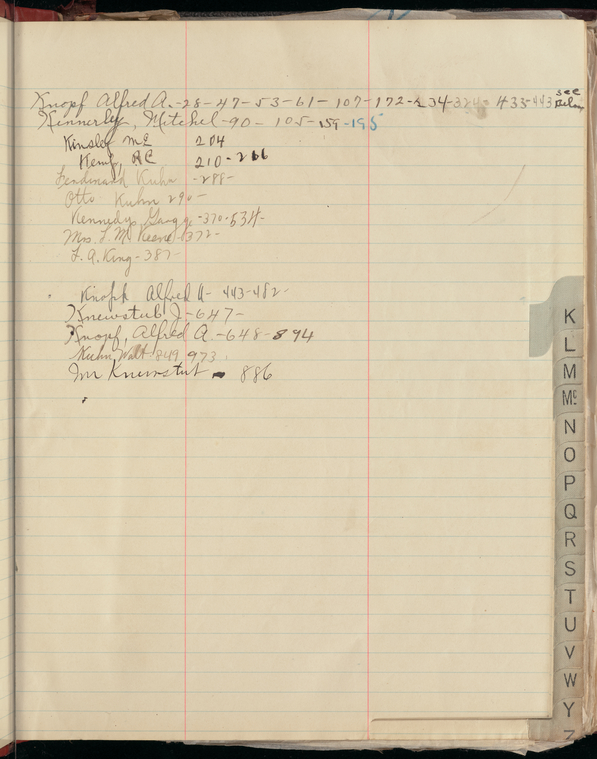 see
Knopf Alfred A.-28-47-53-61-107-172-234-324-433-443 Below
Kennerley, Mitchel-90-105-159-195
Kinsley Mc 204
Kemp, HC 210-266
Ferdinand Kuhn -288-
Otto Kuhn 290-
Kennedy, -370-534-
Mrs. F. M. Keene-372-
F. A. King-387-
Knopf Alfred A- 443-482-
Knewstub J-647-
Knopf, Alfred A.-648-894
Kuhn Walt-849 973.
Im Knewstub - 886
K
L
M
Mc
N
O
P
Q
R
S
T
U
V
W
Y
Z